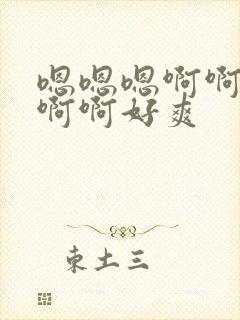 嗯嗯嗯啊啊
啊啊好爽
束土三